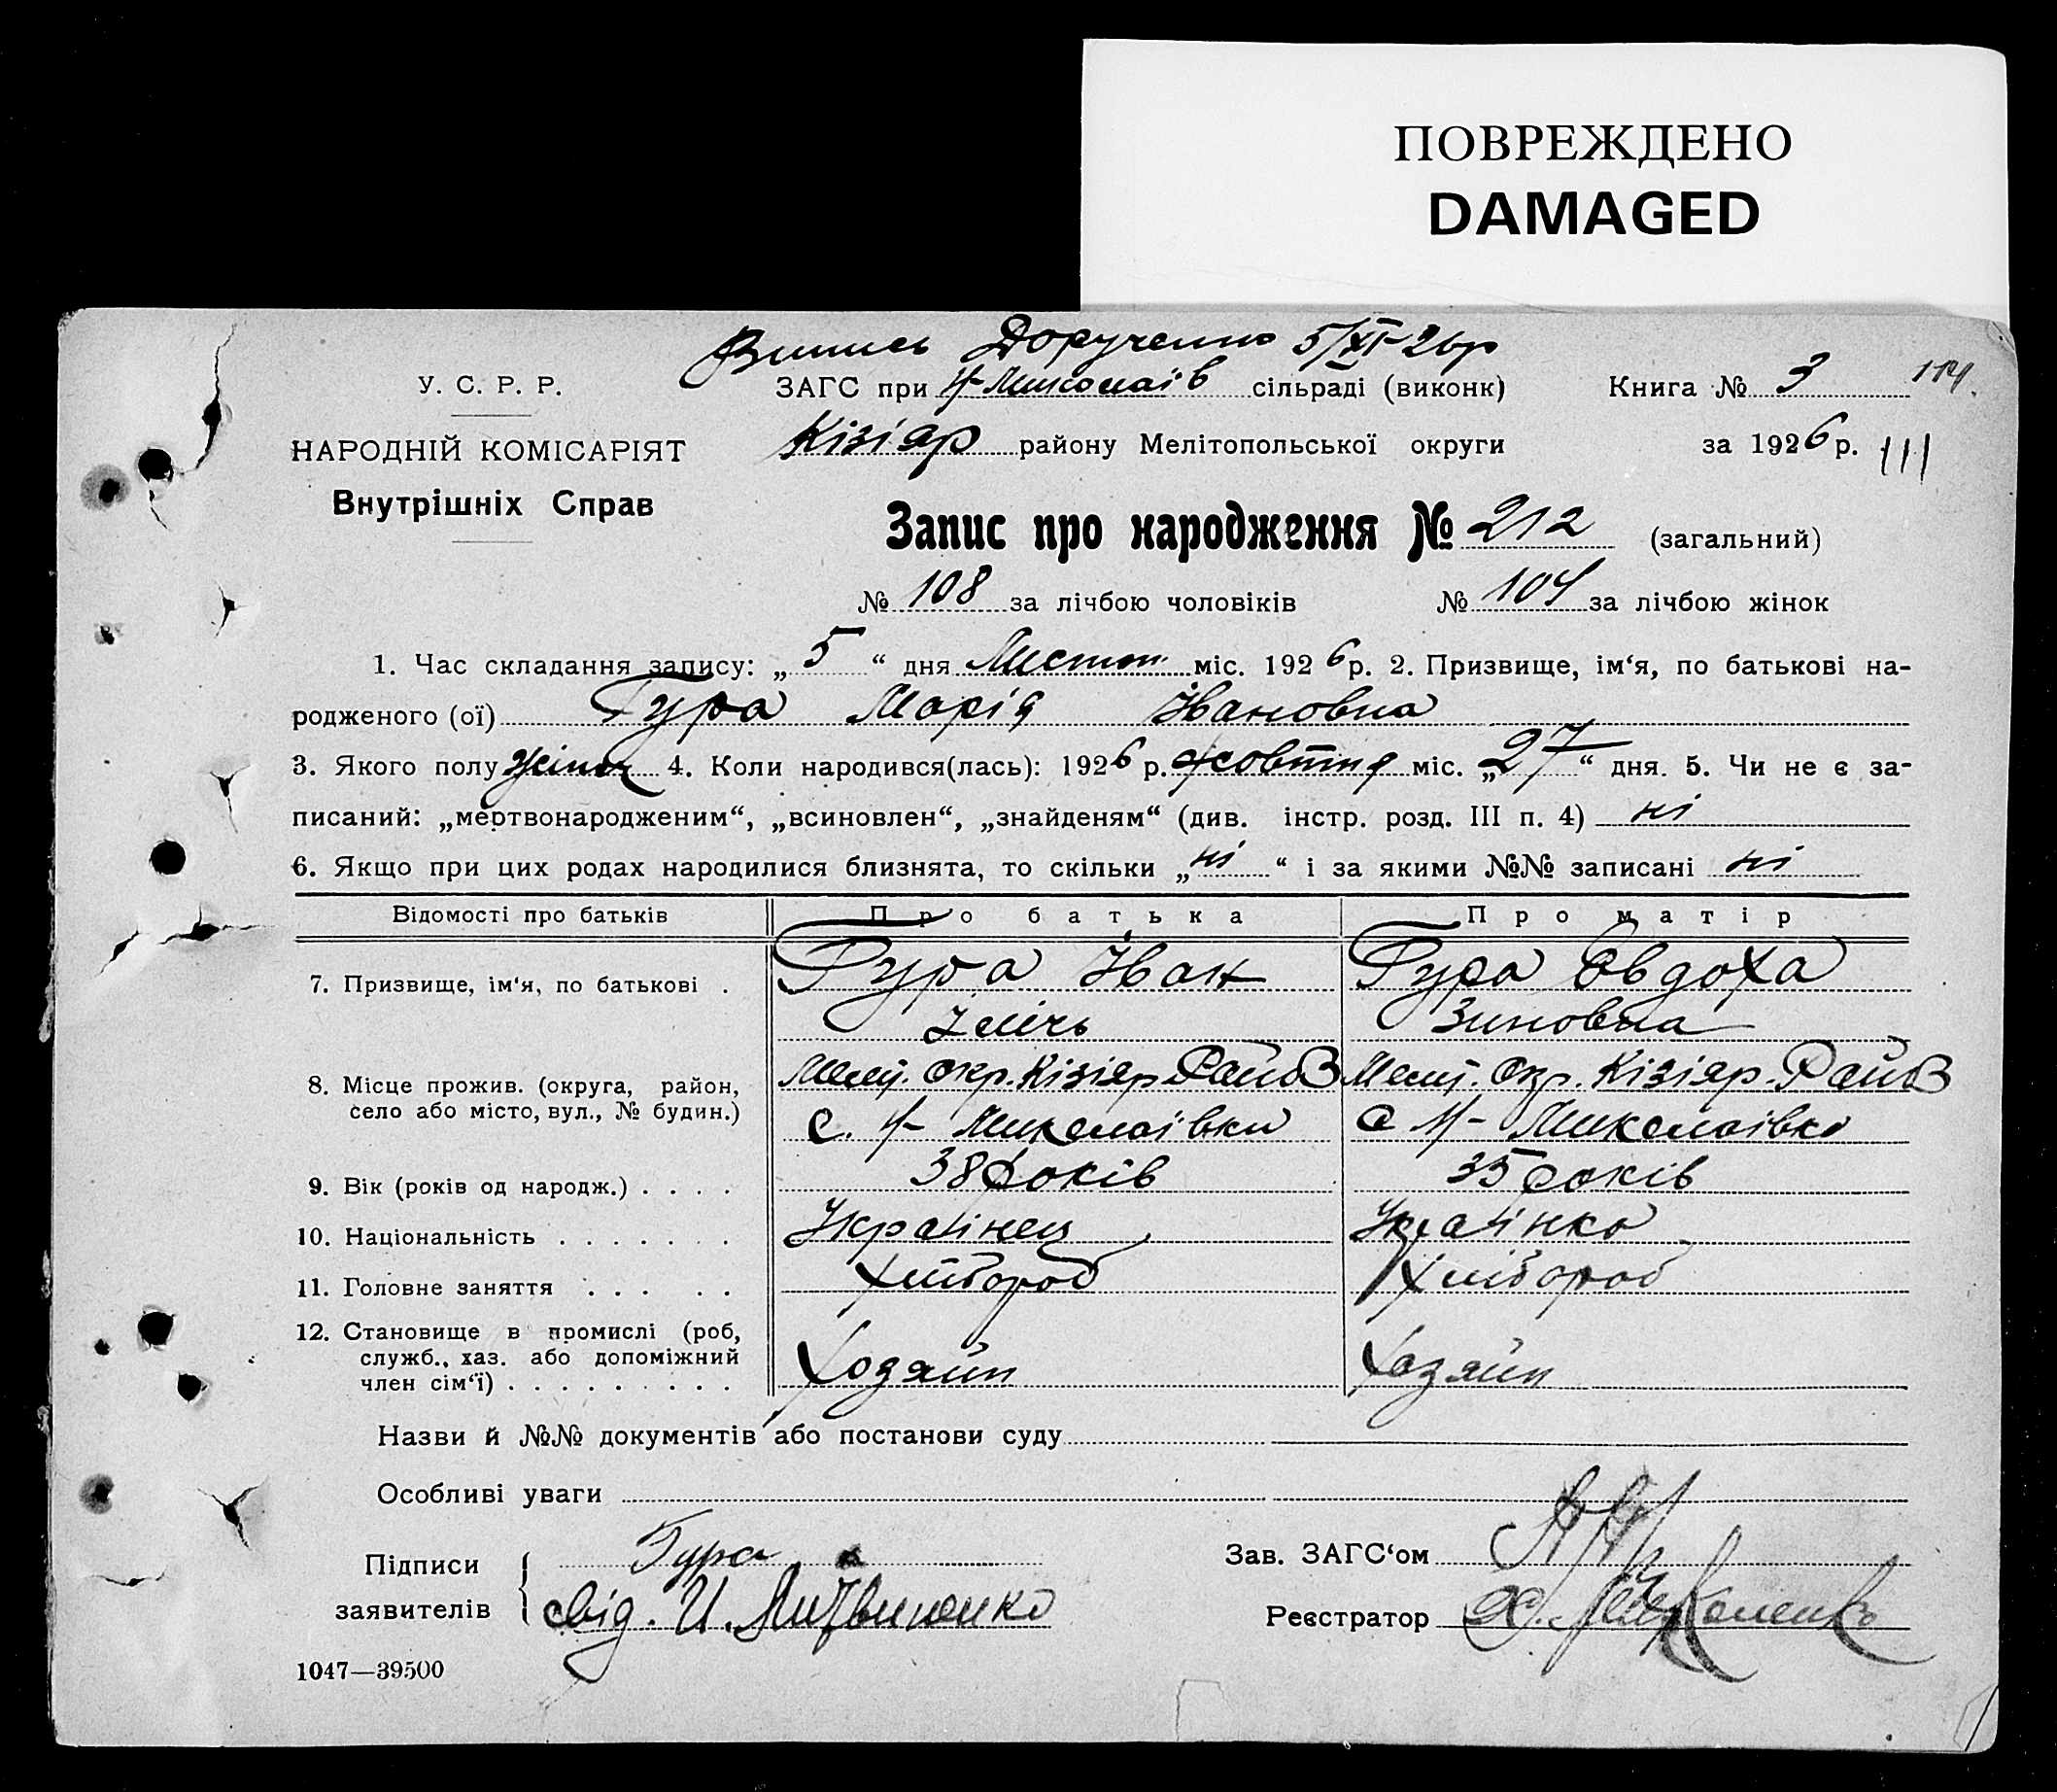 ПОВРЕЖДЕНО
DAMAGED
Випись Доручено 5/XI-26р
У. С. Р. Р.
ЗАГС при Н-Миколаїв сільраді (виконк)
Книга № 3
114.
НАРОДНІЙ КОМІСАРІЯТ
Кізіяр району Мелітопольської округи
за 1926 р.
111
Внутрішніх Справ
Запис про народження № 212 (загальний)
№ 108 за лічбою чоловіків № 104 за лічбою жінок
1. Час складання запису: „ 5 “ дня Листоп. міс. 1926 р. 2. Призвище, ім‘я, по батькові на-
родженого (ої) Гура Марія Івановна
3. Якого полу жіноч 4. Коли народився(лась): 1926 р. жовтня міс. „27“ дня. 5. Чи не є за-
писаний: „мертвонародженим“, „всиновлен“, „знайденям“ (див. інстр. розд. III п. 4) ні
6. Якщо при цих родах народилися близнята, то скільки „ ні “ і за якими №№ записані ні
Відомості про батьків Про батька Про матір
7. Призвище, ім‘я, по батькові . Гура Іван Гура Євдоха
Ілічь Зиновна
8. Місце прожив. (округа, район, Меліт. Окр. Кізіяр. Району Меліт. Окр. Кізіяр. Району
село або місто, вул., № будин.) с. Н- Миколаївки с Н- Миколаівка
9. Вік (років од народж.) . . . . 38 років 35 років
10. Національність . . . . . . . Українец Українка
11. Головне заняття . . . . . Хлібороб Хлібороб
12. Становище в промислі (роб, 
служб., хаз. або допоміжний
член сім‘ї) . . . . . . . . . Ходяйн Хазяйн
Назви й №№ документів або постанови суду
Особливі уваги
Підписи Гура Зав. ЗАГС‘ом
заявителів свід. И. Литвиненко Реєстратор
1047—39500